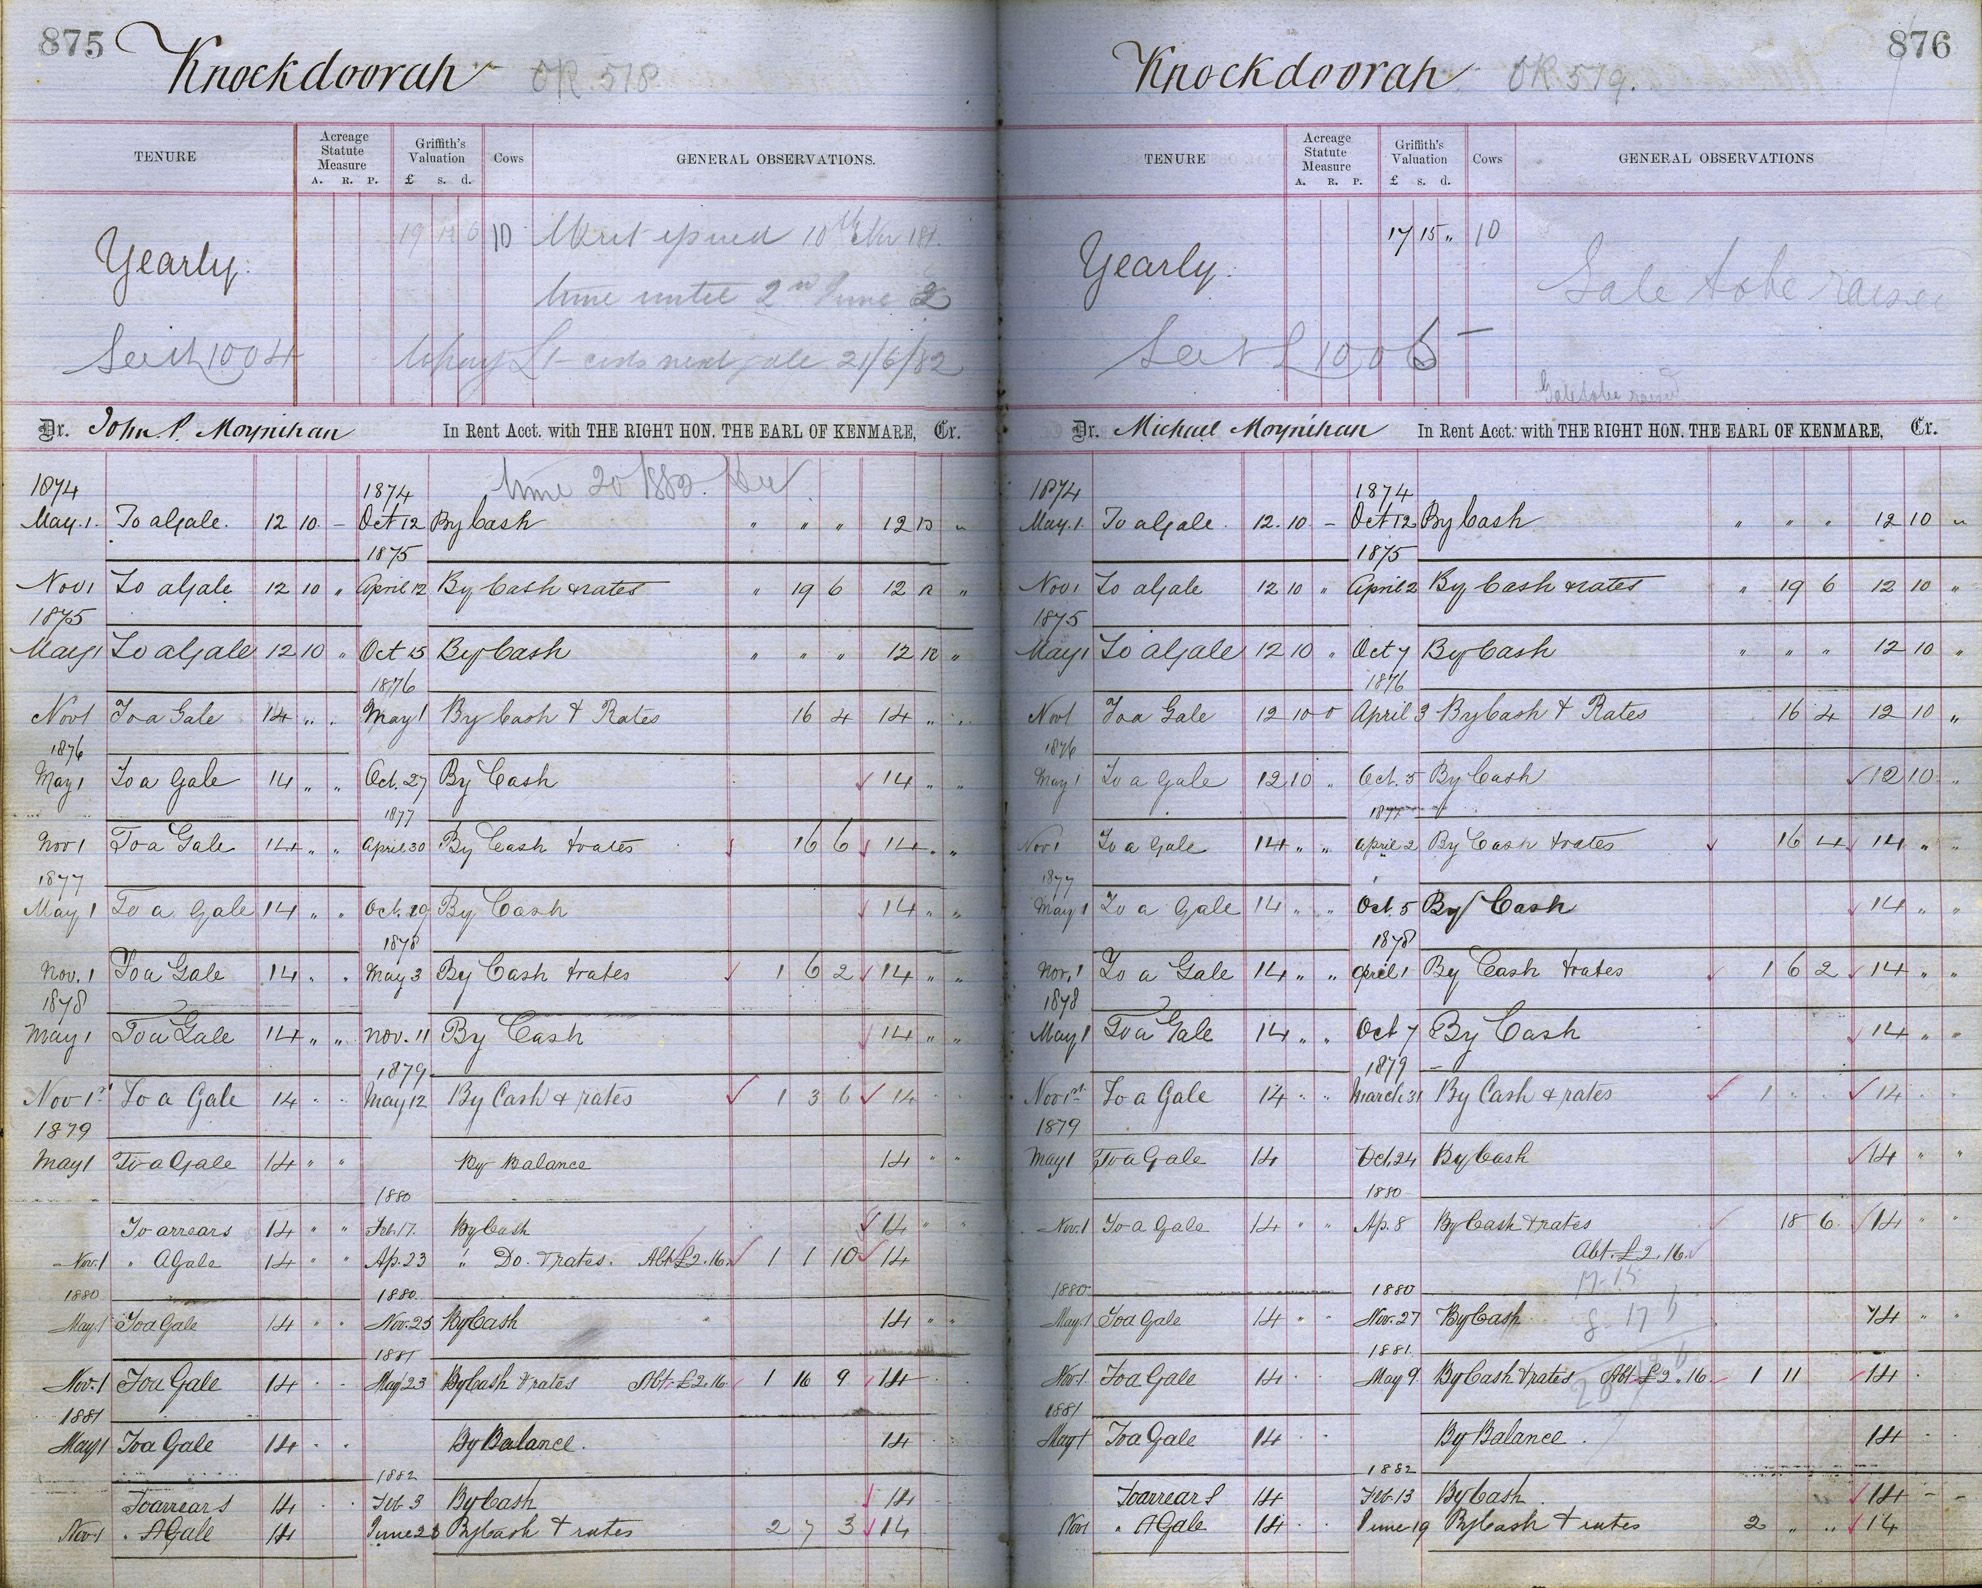 875
Knockdoorah OR. 518
TENURE Acreage Statute Measure A. R. P. Griffith's Valuation £ s. d. Cows GENERAL OBSERVATIONS.
Yearly. 19 12 6 10 10th
time until 2nd June 2
1004 to pay £1 costs next gale 21/6/82
Dr. John P. Moynihan In Rent Acct. with THE RIGHT HON. THE EARL OF KENMARE, Cr.
time 20
1874 1874
May. 1. To a Gale. 12 10 - Oct 12 By Cash " " " 12 10 "
1875
Nov 1 To a Gale 12 10 " April 12 By Cash & rates " 19 6 12 10 "
1875
May 1 To a Gale 12 10 " Oct 15 By Cash " " " 12 10 "
1876
Nov 1 To a Gale 14 " " May 1 By Cash & Rates 16 4 14 " "
1876
May 1 To a Gale 14 " " Oct. 27 By Cash ✓ 14 " "
1877
Nov 1 To a Gale 14 " " April 30 By Cash & rates ✓ 16 6 ✓ 14 " "
1877
May 1 To a Gale 14 " " Oct. 29 By Cash ✓ 14 " "
1878
Nov. 1 To a Gale 14 " " May 3 By Cash & rates ✓ 1 6 2 ✓ 14 " "
1878
May 1 To a Gale 14 " " Nov. 11 By Cash ✓ 14 " "
1879
Nov 1st To a Gale 14 " " May 12 By Cash & rates ✓ 1 3 6 ✓ 14 " "
1879
May 1 To a Gale 14 " " By Balance 14 " "
1880
To arrears 14 " " Feb. 17. By Cash ✓ 14 " "
Nov. 1 " A Gale 14 " " Ap. 23 " Do. & rates. Abt. £2.16. ✓ 1 1 10 ✓ 14
1880 1880
May. 1 To a Gale 14 " " Nov. 25 By Cash " 14 " "
1881
Nov. 1 To a Gale 14 " " May 23 By Cash & rates Abt. £2.16 ✓ 1 16 9 ✓ 14
1881
May 1 To a Gale 14 " " By Balance. 14
1882
To arrears 14 " " Feb 3 By Cash ✓ 14
Nov. 1 " A Gale 14 June 23 By Cash & rates 2 7 3 ✓ 14
876
Knockdoorah OR. 519.
TENURE Acreage Statute Measure A. R. P. Griffith's Valuation £ s. d. Cows GENERAL OBSERVATIONS
Yearly. 17 15 " 10
Gale to be raised
1006
Gale to be raised
Dr. Michael Moynihan In Rent Acct. with THE RIGHT HON. THE EARL OF KENMARE, Cr.
1874 1874
May. 1. To a Gale. 12. 10 - Oct 12 By Cash " " " 12 10 "
1875
Nov 1 To a Gale 12 10 " April 2 By Cash & rates " 19 6 12 10 "
1875
May 1 To a Gale 12 10 " Oct 7 By Cash " " " 12 10 "
1876
Nov 1 To a Gale 12 10 0 April 3 By Cash & Rates 16 4 12 10 "
1876
May 1 To a Gale 12 10 " Oct. 5 By Cash ✓ 12 10 "
1877
Nov 1 To a Gale 14 " " April 2 By Cash & rates ✓ 16 4 ✓ 14 " "
1877
May 1 To a Gale 14 " " Oct. 5 By Cash ✓ 14 " "
1878
Nov. 1 To a Gale 14 " " April 1 By Cash & rates ✓ 1 6 2 ✓ 14 " "
1878
May 1 To a Gale 14 " " Oct 7 By Cash ✓ 14 " "
1879
Nov 1st To a Gale 14 " " March 31 By Cash & rates ✓ 1 " " ✓ 14
1879
May 1 To a Gale 14 Oct. 24 By Cash ✓ 14 " "
1880
Nov. 1 To a Gale 14 " " Ap. 8 By Cash & rates ✓ 18 6. ✓ 14 " "
Abt. £2.16. ✓
17.15
1880 1880
May. 1 To a Gale 14 " " Nov. 27 By Cash 14 " "
8 17 6
1881.
Nov. 1 To a Gale 14 " " May 9. By Cash & rates Abt. £2.16. ✓ 1 11 ✓ 14
1881
May 1 To a Gale 14 " " By Balance. 14
1882
To arrears 14 Feb. 13 By Cash. ✓ 14 - -
Nov 1 " A Gale 14 " " June 19 By Cash & rates 2 " " ✓ 14